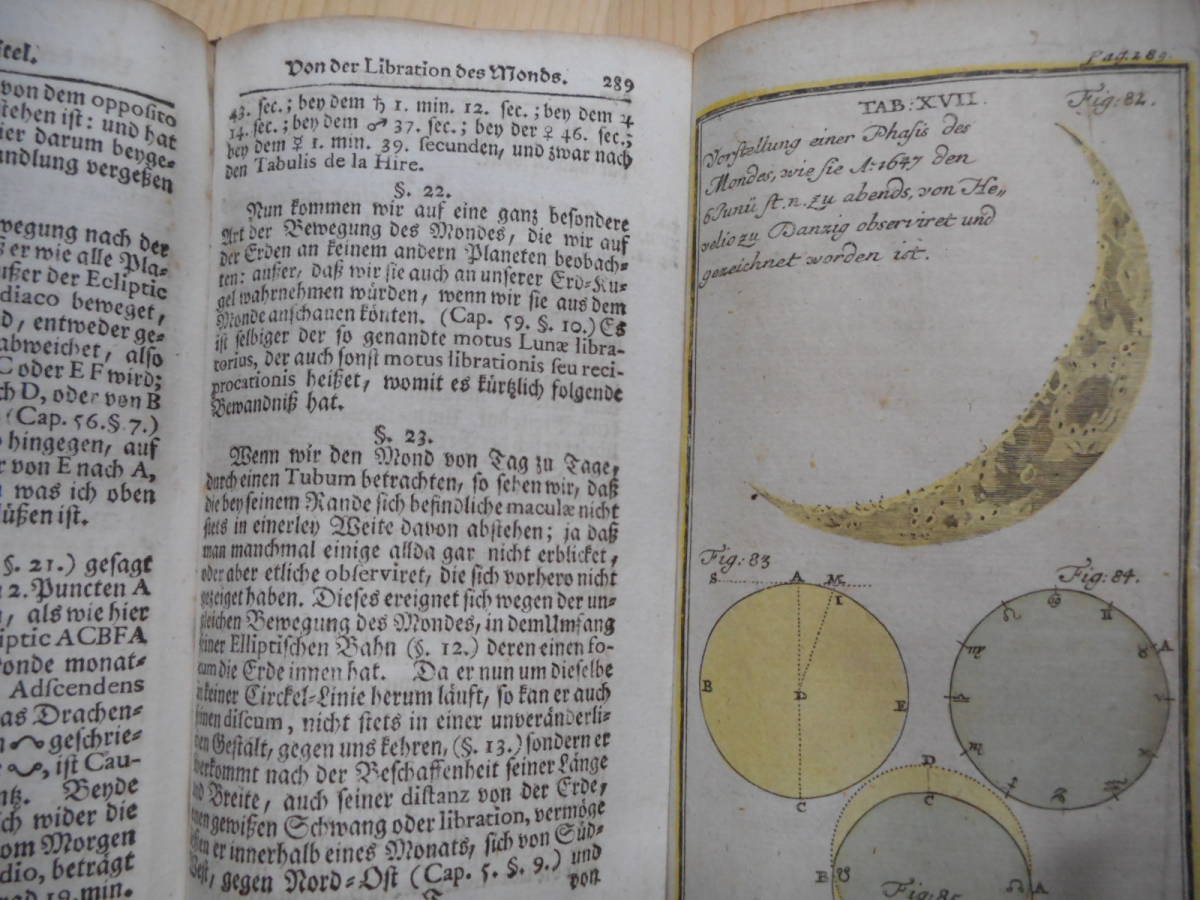 itel.
von dem opposito
stehen ist: und hat
ier darum beyge-
andlung vergeßen
wegung nach der
ß er wie alle Pla-
ußer der Ecliptic
diaco beweget,
d, entweder ge-
abweichet, also
C oder E F wird;
ch D, oder von B
(Cap. 56. §. 7.)
hingegen, auf
r von E nach A,
was ich oben
lüßen ist.
§. 21.) gesagt
2. Puncten A
, als wie hier
liptic ACBFA
onde monat-
Adscendens
as Drachen-
geschrie-
, ist Cau-
ntz. Beyde
ch wider die
om Morgen
dio, beträgt
19. min.
Von der Libration des Monds. 289
43. sec.; bey dem ♄ 1. min. 12. sec.; bey dem ♃
14. sec.; bey dem ♂ 37. sec.; bey der ♀ 46. sec.;
bey dem ☿ 1. min. 39. secunden, und zwar nach
den Tabulis de la Hire.
§. 22.
Nun kommen wir auf eine ganz besondere
Art der Bewegung des Mondes, die wir auf
der Erden an keinem andern Planeten beobach-
ten: außer, daß wir sie auch an unserer Erd-Ku-
gel wahrnehmen würden, wenn wir sie aus dem
Monde anschauen könten. (Cap. 59. §. 10.) Es
ist selbiger der so genandte motus Lunæ libra-
torius, der auch sonst motus librationis seu reci-
procationis heißet, womit es kürtzlich folgende
Bewandniß hat.
§. 23.
Wenn wir den Mond von Tag zu Tage,
durch einen Tubum betrachten, so sehen wir, daß
die bey seinem Rande sich befindliche maculæ nicht
stets in einerley Weite davon abstehen; ja daß
man manchmal einige allda gar nicht erblicket,
oder aber etliche observiret, die sich vorhero nicht
gezeiget haben. Dieses ereignet sich wegen der un-
gleichen Bewegung des Mondes, in dem Umfang
seiner Elliptischen Bahn (§. 12.) deren einen fo-
cum die Erde innen hat. Da er nun um dieselbe
in keiner Circkel-Linie herum läuft, so kan er auch
seinen discum, nicht stets in einer unveränderli-
chen Gestalt, gegen uns kehren, (§. 13.) sondern er
verkommt nach der Beschaffenheit seiner Länge
und Breite, auch seiner distanz von der Erde,
einen gewißen Schwang oder libration, vermöge
deßen er innerhalb eines Monats, sich von Süd-
West, gegen Nord-Ost (Cap. 5. §. 9.) und
von
Pag. 289
TAB: XVII.
Fig: 82.
Vorstellung einer Phasis des
Mondes, wie sie A: 1647 den
6 Junii st. n. zu abends, von He,,
velio zu Danzig observiret und
gezeichnet worden ist.
Fig: 83
S A M
I
B D E
C
Fig: 84.
♌ ♋ ♊
♍ ♉ A
♎
♏
♐ ♑ ♒
D
C
B ☋ ☊ A
Fig: 85.